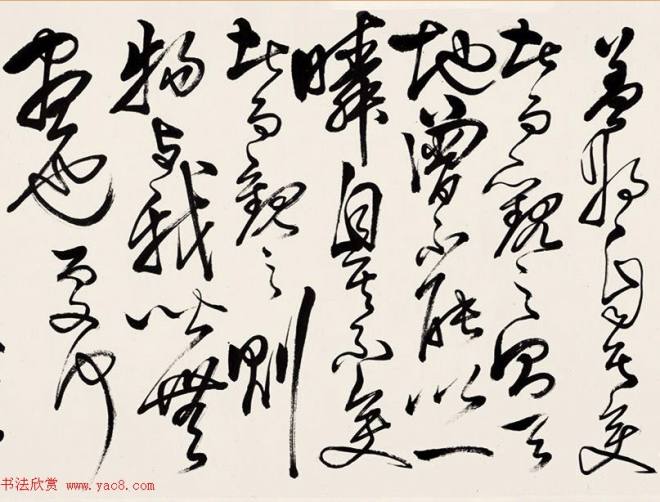 蓋將自其變
者而觀之則天
地曾不能以一
瞬自其不變
者而觀之則
物與我皆無
盡也而又何
书法欣赏 www.yac8.com